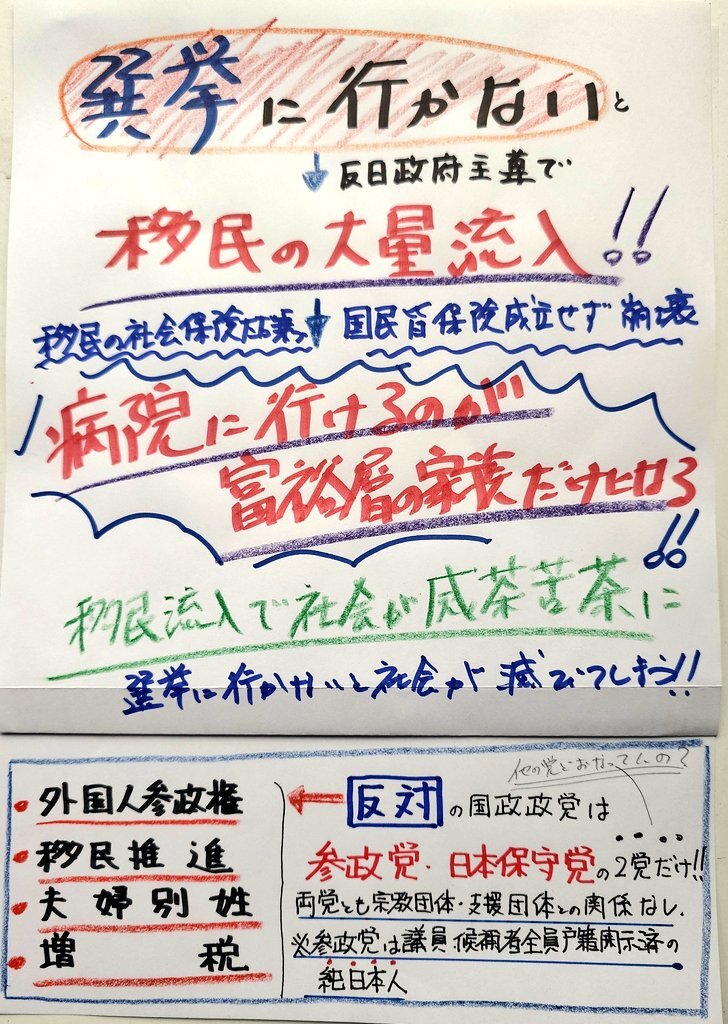 選挙に行かないと
反日政府主導で
移民の大量流入!!
移民の社会保険 国民皆保険成立せず崩壊
病院に行けるのが
富裕層の家族だけになる!!
移民流入で社会が滅茶苦茶に
選挙に行かないと社会が滅びてしまう!!
他の党とおなってくの?
・外国人参政権
・移民推進
・夫婦別姓
・増税
反対の国政政党は
....
参政党・日本保守党の2党だけ!!
両党とも宗教団体・支援団体との関係なし.
※参政党は議員・候補者全員戸籍開示済の
純日本人